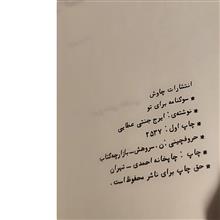 انتشارات چاوش
* سوکنامه برای تو
* نوشته‌ی: ایرج جنتی عطایی
* چاپ اول: ۲۵۳۷
* حروفچینی: ن. سروش_بازارچه‌کتاب
* چاپ: چاپخانه احمدی _ تهران
* حق چاپ برای ناشر محفوظ است.